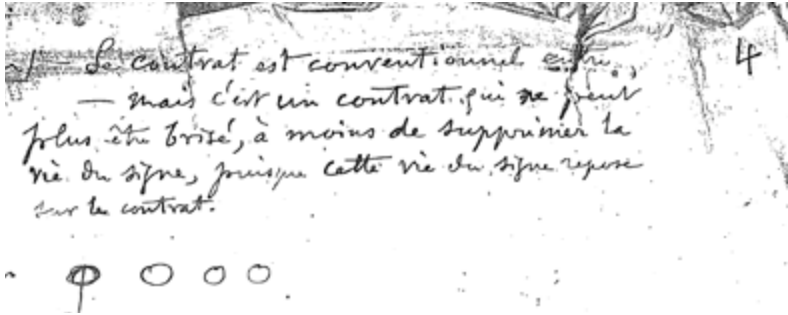 Le contrat est conventionnel entre 4
— mais c'est un contrat qui ne peut
plus être brisé, à moins de supprimer la
vie du signe, puisque cette vie du signe repose
sur le contrat.